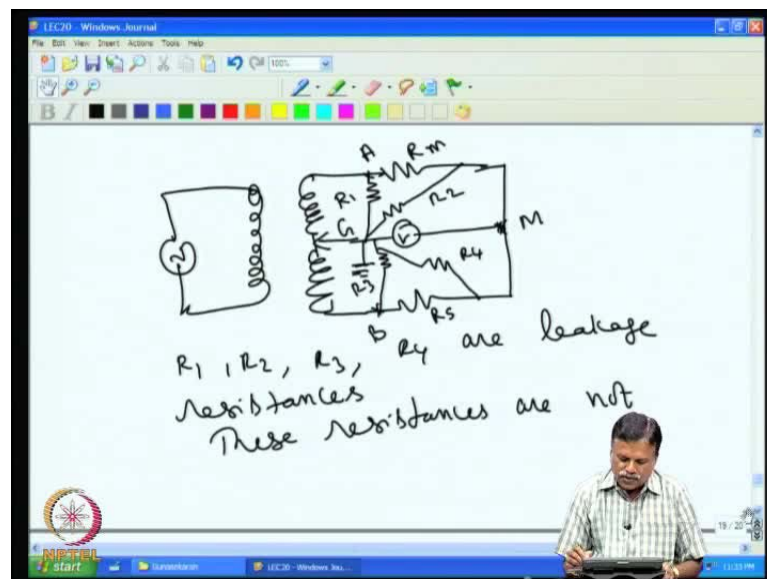 LEC20 - Windows Journal
File Edit View Insert Actions Tools Help
100%
B I
A
Rm
R1
R2
G
V
M
R3
R4
B
R5
R1, R2, R3, R4 are leakage
resistances
These resistances are not
19 / 20
NPTEL
start
Gunasekaran
LEC20 - Windows Jou...
11:33 PM